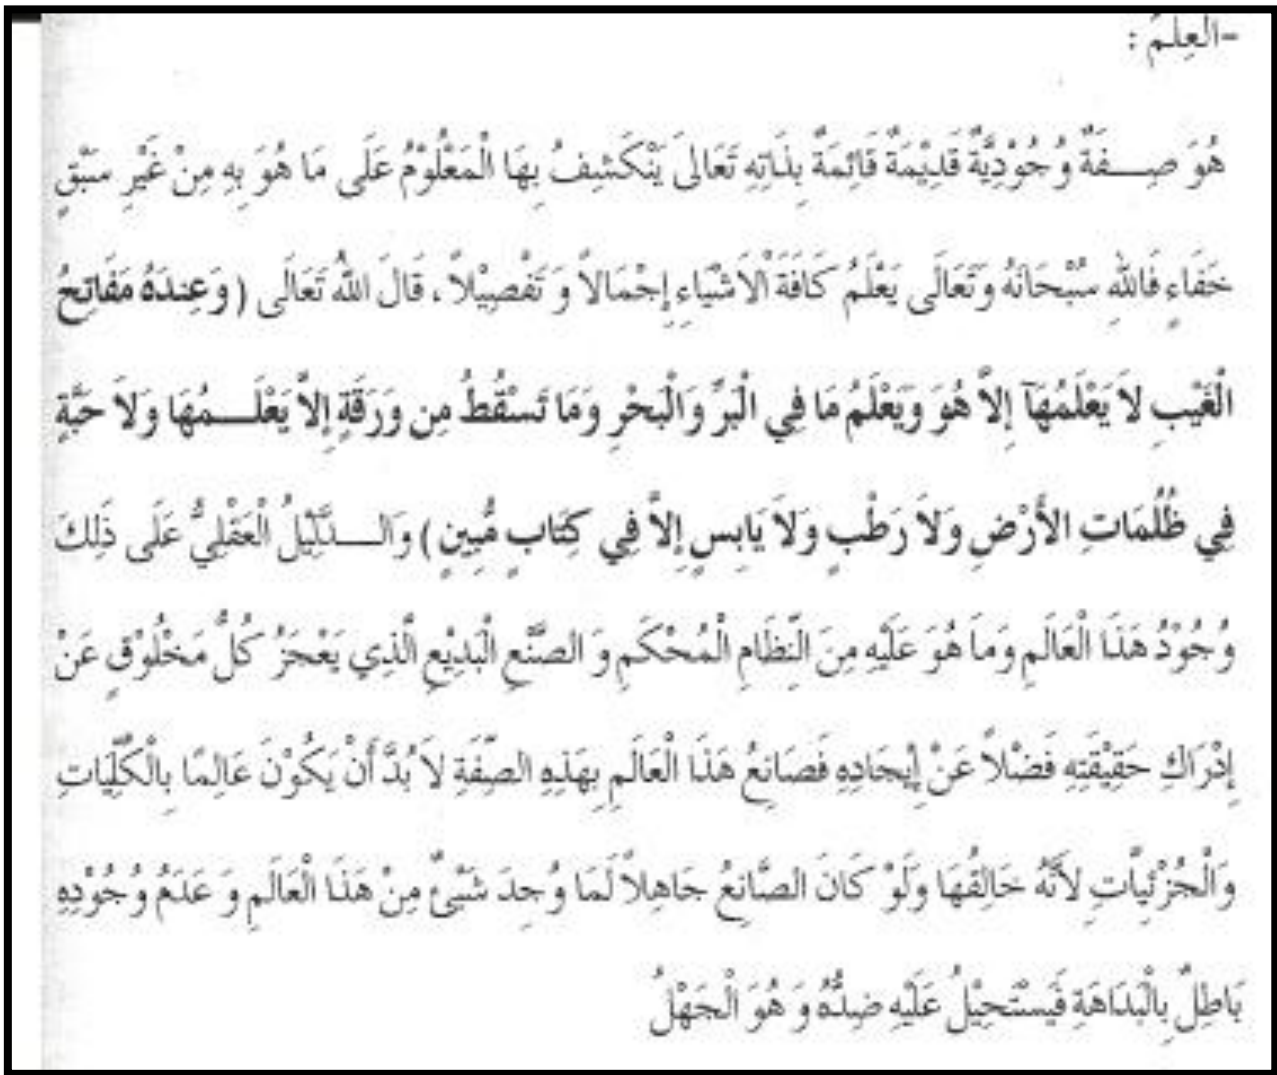 -الْعِلْمُ :
هُوَ صِـــفَةٌ وُجُوْدِيَّةٌ قَدِيْمَةٌ قَائِمَةٌ بِذَاتِهِ تَعَالىَ يَنْكَشِفُ بِهَا الْمَعْلُوْمُ عَلَى مَا هُوَ بِهِ مِنْ غَيْرِ سَبْقِ
خَفَاءٍ فَاللهِ سُبْحَانَهُ وَتَعَالَى يَعْلَمُ كَافَةَ اْلاَشْيَاءِ إِجْمَالاً وَ تَفْصِيْلاً ، قَالَ اللهُ تَعَالَى ( وَعِندَهُ مَفَاتِحُ
الْغَيْبِ لاَ يَعْلَمُهَآ إِلاَّ هُوَ وَيَعْلَمُ مَا فِي الْبَرِّ وَالْبَحْرِ وَمَا تَسْقُطُ مِن وَرَقَةٍ إِلاَّ يَعْلَـــمُهَا وَلاَ حَبَّةٍ
فِي ظُلُمَاتِ الأَرْضِ وَلاَ رَطْبٍ وَلاَ يَابِسٍ إِلاَّ فِي كِتَابٍ مُّبِينٍ ) وَالـــدَّلِيْلُ الْعَقْلِيُّ عَلَى ذَلِكَ
وُجُوْدُ هَذَا الْعَالَمِ وَمَا هُوَ عَلَيْهِ مِنَ النِّظَامِ الْمُحْكَمِ وَ الصُّنْعِ الْبَدِيْعِ الَّذِي يَعْجَزُ كُلُّ مَخْلُوْقٍ عَنْ
إِدْرَاكِ حَقِيْقَتِهِ فَضْلاً عَنْ إِيْجَادِهِ فَصَانِعُ هَذَا الْعَالَمِ بِهَذِهِ الصِّفَةِ لاَ بُدَّ أَنْ يَكُوْنَ عَالِمًا بِالْكُلِّيَاتِ
وَالْجُزْئِيَّاتِ لِأَنَّهُ خَالِقُهَا وَلَوْ كَانَ الصَّانِعُ جَاهِلاً لَمَا وُجِدَ شَيْئٌ مِنْ هَذَا الْعَالَمِ وَ عَدَمُ وُجُوْدِهِ
بَاطِلٌ بِالْبَدَاهَةِ فَيَسْتَحِيْلُ عَلَيْهِ ضِدُّهُ وَ هُوَ الْجَهْلُ